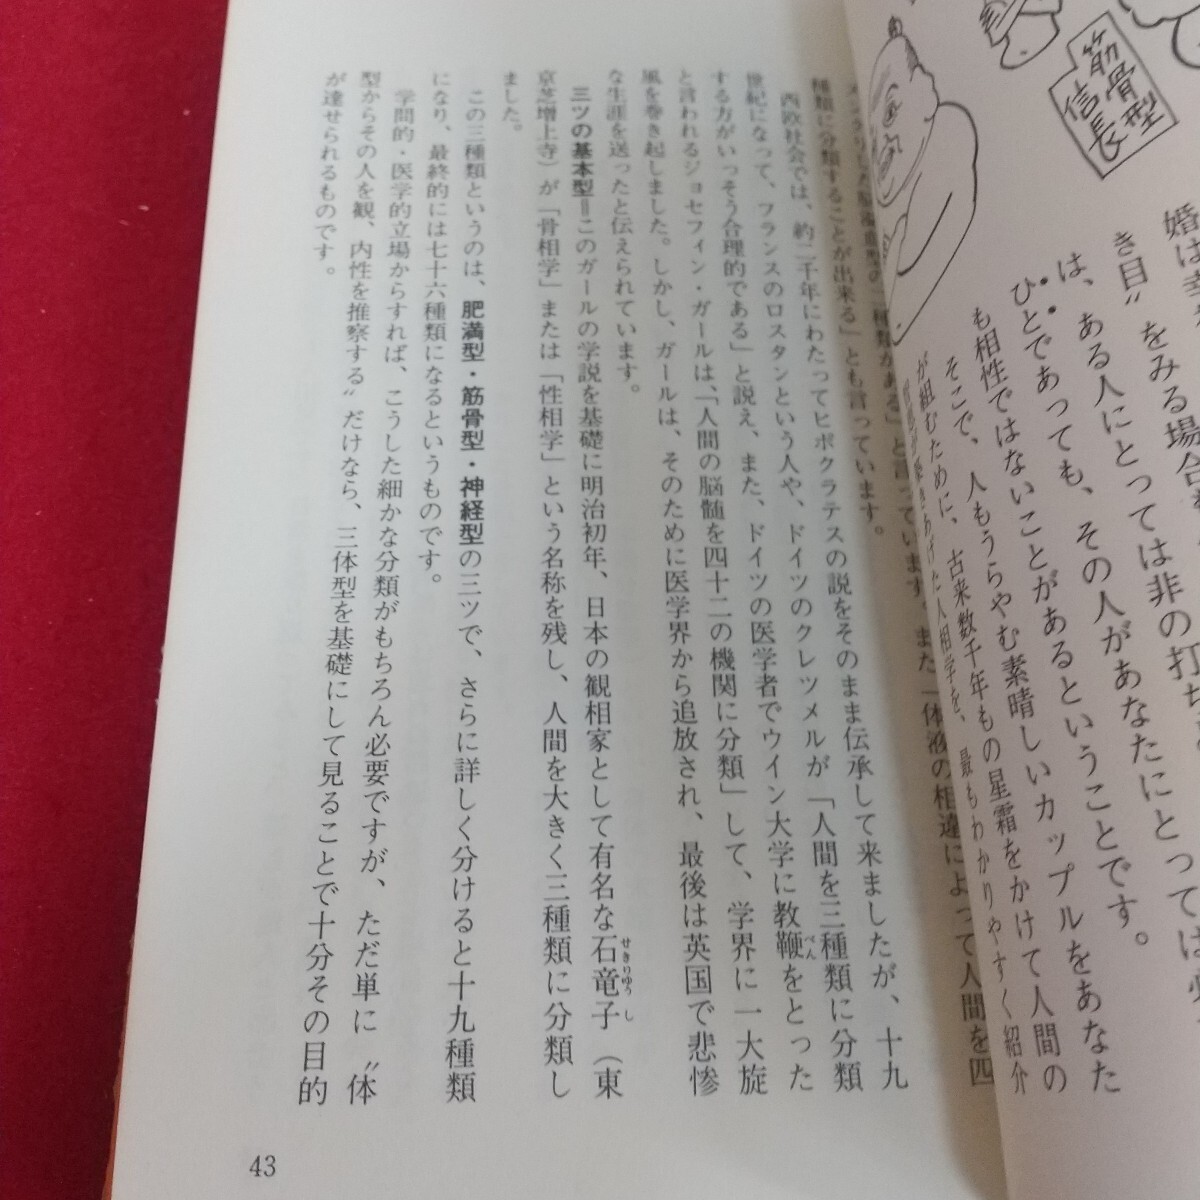 筋骨型
信長
婚は幸
き目〟をみる場合
は、ある人にとっては非の打ち
ひとであっても、その人があなたにとっては
も相性ではないことがあるということです。
そこで、人もうらやむ素晴しいカップルをあなた
が組むために、古来数千年もの星霜をかけて人間の
きあげた人相学を、最もわかりやすく紹介
種類がある」と言っています。また「体液の相違によって人間を四
種類に分類することが出来る」とも言っています。
西欧社会では、約二千年にわたってヒポクラテスの説をそのまま伝承して来ましたが、十九
世紀になって、フランスのロスタンという人や、ドイツのクレツメルが「人間を三種類に分類
する方がいっそう合理的である」と説え、また、ドイツの医学者でウイン大学に教鞭をとった
べん
と言われるジョセフィン・ガールは、「人間の脳髄を四十二の機関に分類」して、学界に一大旋
風を巻き起しました。しかし、ガールは、そのために医学界から追放され、最後は英国で悲惨
な生涯を送ったと伝えられています。
三ツの基本型=このガールの学説を基礎に明治初年、日本の観相家として有名な石竜子(東
せきりゆうし
京芝増上寺)が「骨相学」または「性相学」という名称を残し、人間を大きく三種類に分類し
ました。
この三種類というのは、肥満型・筋骨型・神経型の三ツで、さらに詳しく分けると十九種類
になり、最終的には七十六種類になるというものです。
学問的・医学的立場からすれば、こうした細かな分類がもちろん必要ですが、ただ単に〝体
型からその人を観、内性を推察する〟だけなら、三体型を基礎にして見ることで十分その目的
が達せられるものです。
43